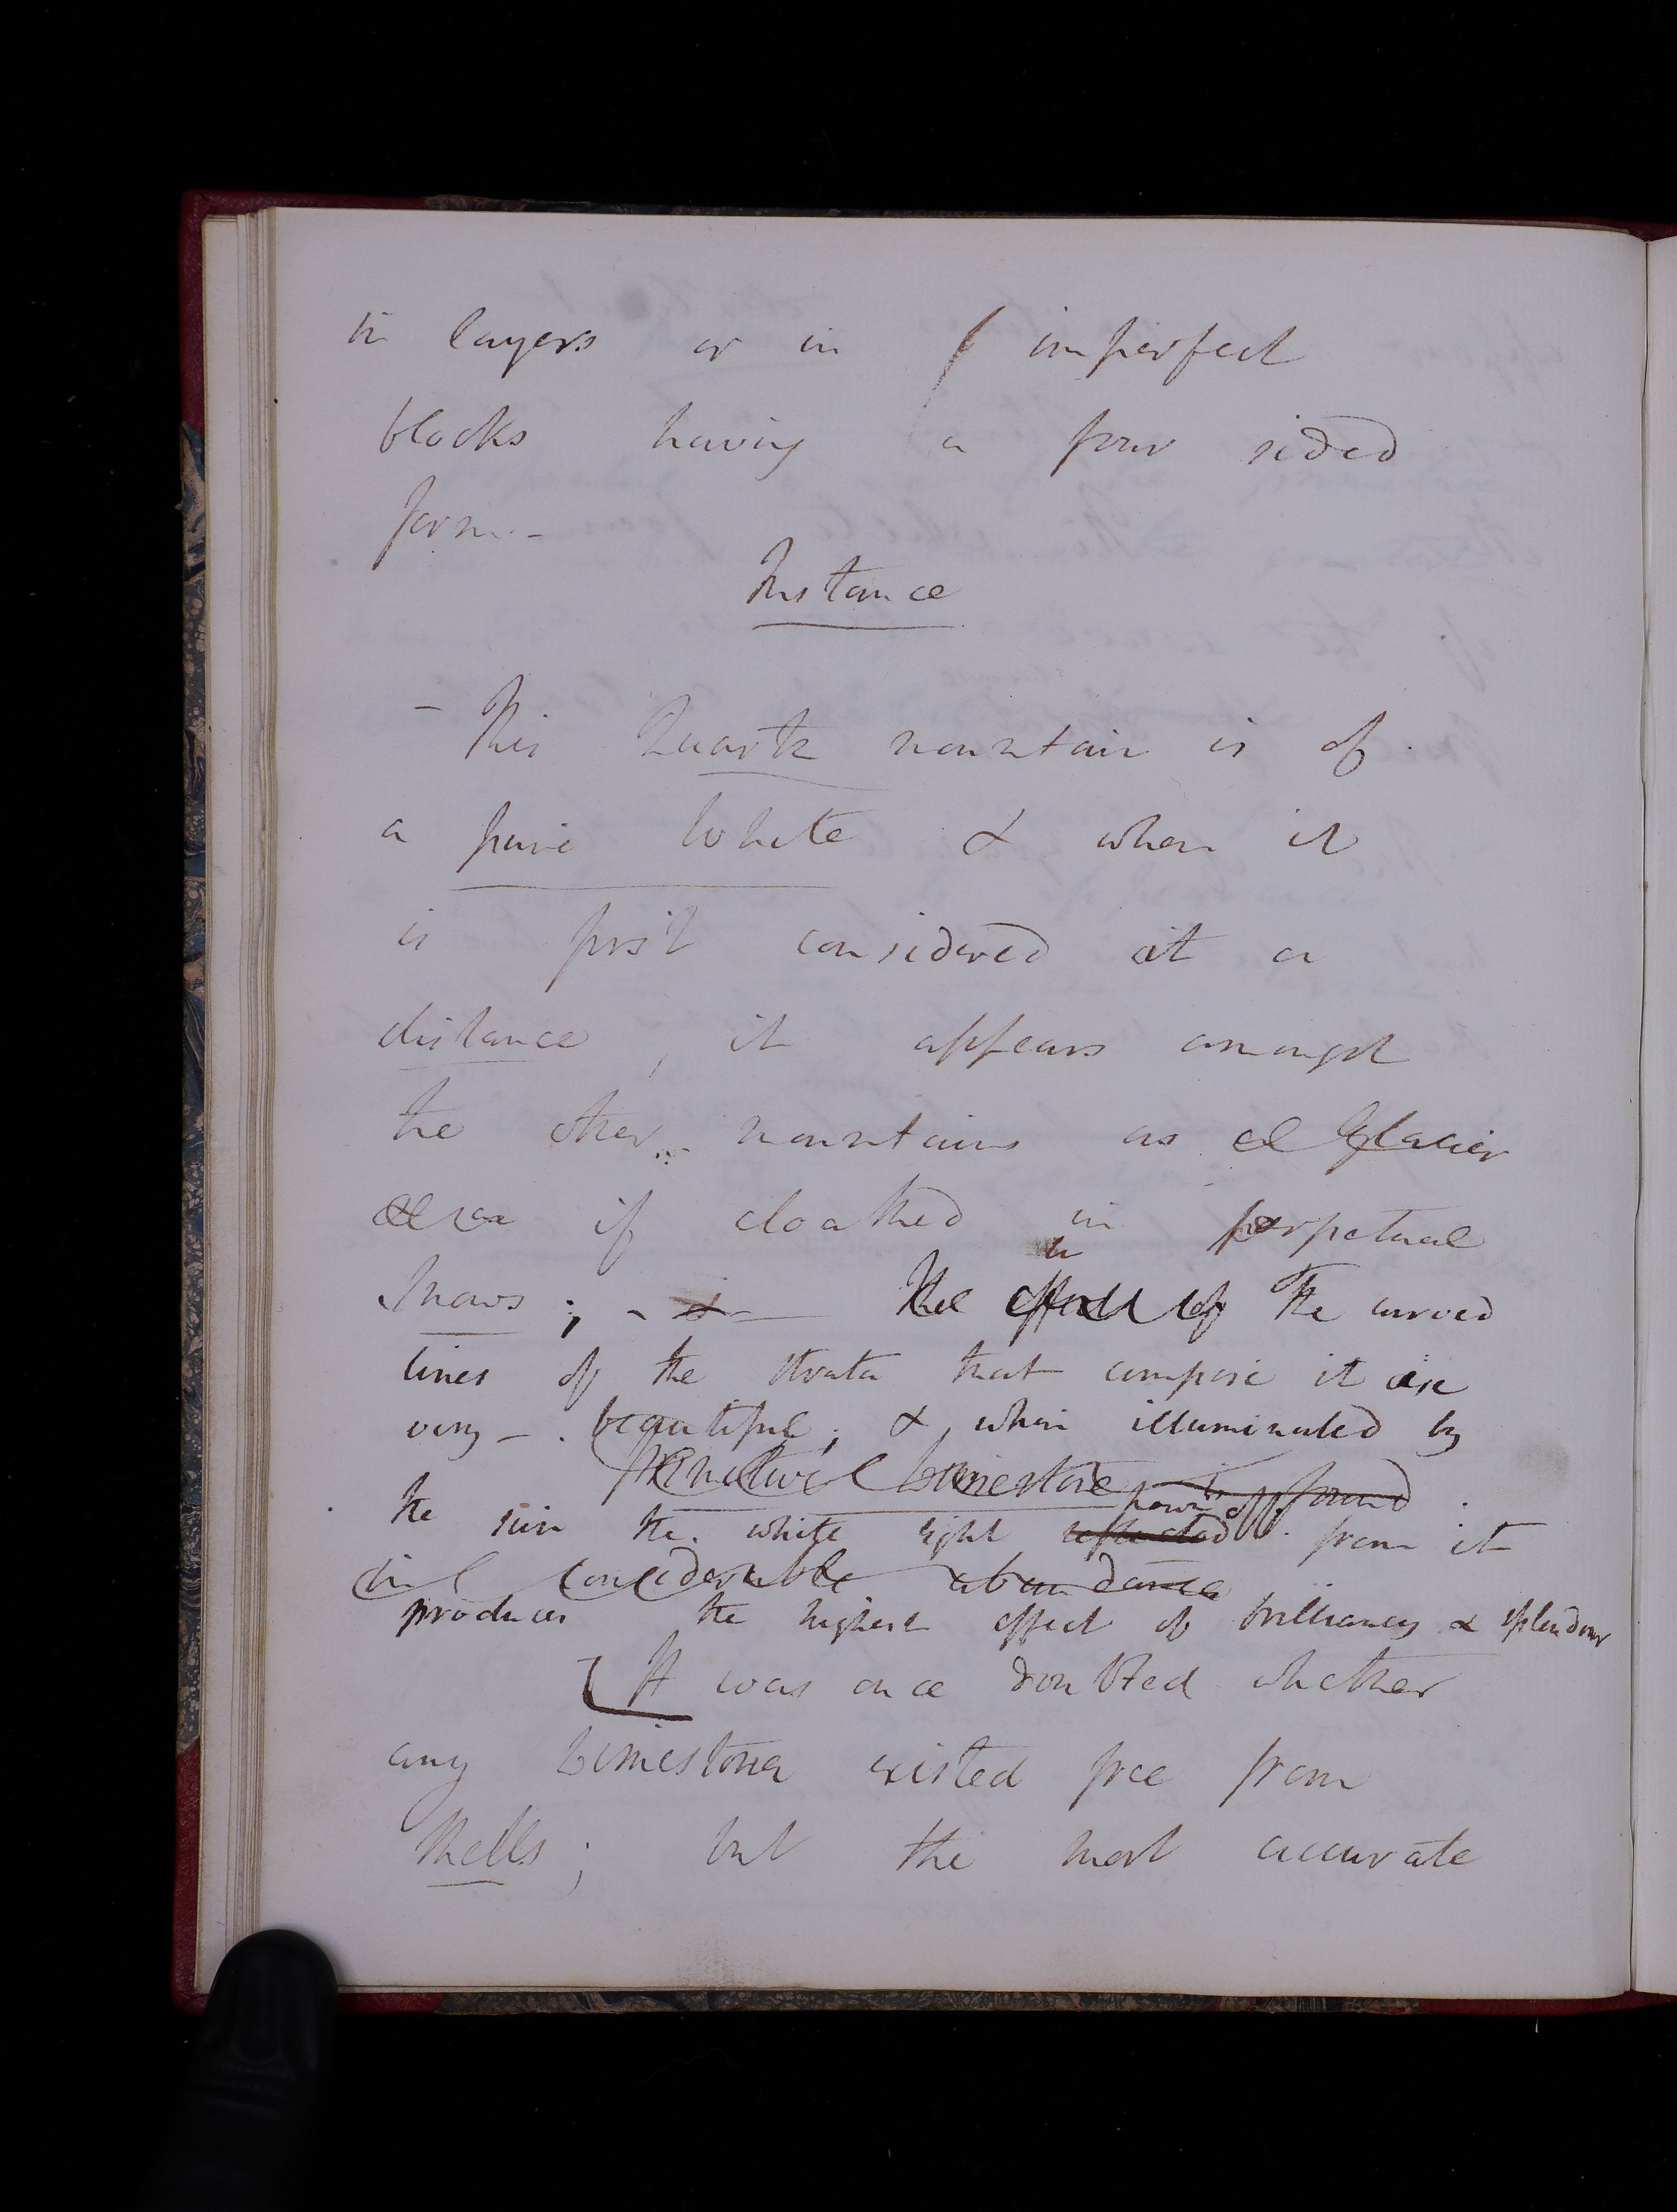 in layers or in imperfect
blocks having a four sided
form. -
Instance
- This Quartz mountain is of
a pure White & when it
is first considered at a
distance, it appears amongst
the other mountains as a Glacier
or as if cloathed in perpetual
Snows; - & - The effect of The curved
lines of the strata that compose it are
very - beautiful; & when illuminated by
Primitive Limestone is found
the sun the white light reflected pouring off from it
in considerable abundance
produces the highest effect of brilliancy & splendour
It was once doubted whether
any Limestone existed free from
Shells; but the most accurate